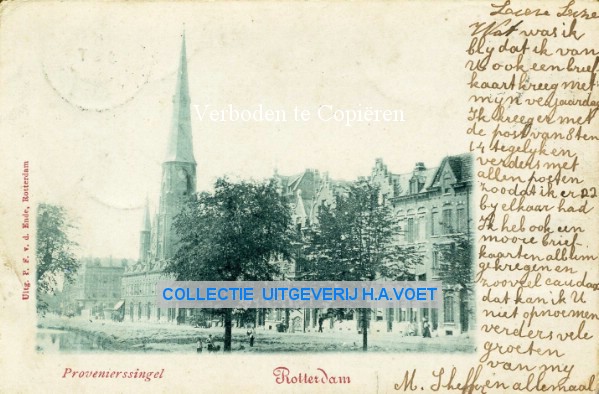 Leeze Lize
Wat was ik
bly dat ik van
U ook een brief
kaart kreeg met
mijn verjaardag
Ik kreeg er met
de post van 8 ten
14 tegelyk en
verders met
allen posten
zoodat ik er 22
by elkaar had
Ik heb ook een
mooie brief
kaarten album
gekregen en
zooveel
dat kan ik U
niet opnoemen
verders vele
groeten
van my
M. en allemaal
Verboden te Copiëren
COLLECTIE UITGEVERIJ H.A.VOET
Uitg. P. F. v. d. Ende, Rotterdam
Provenierssingel
Rotterdam